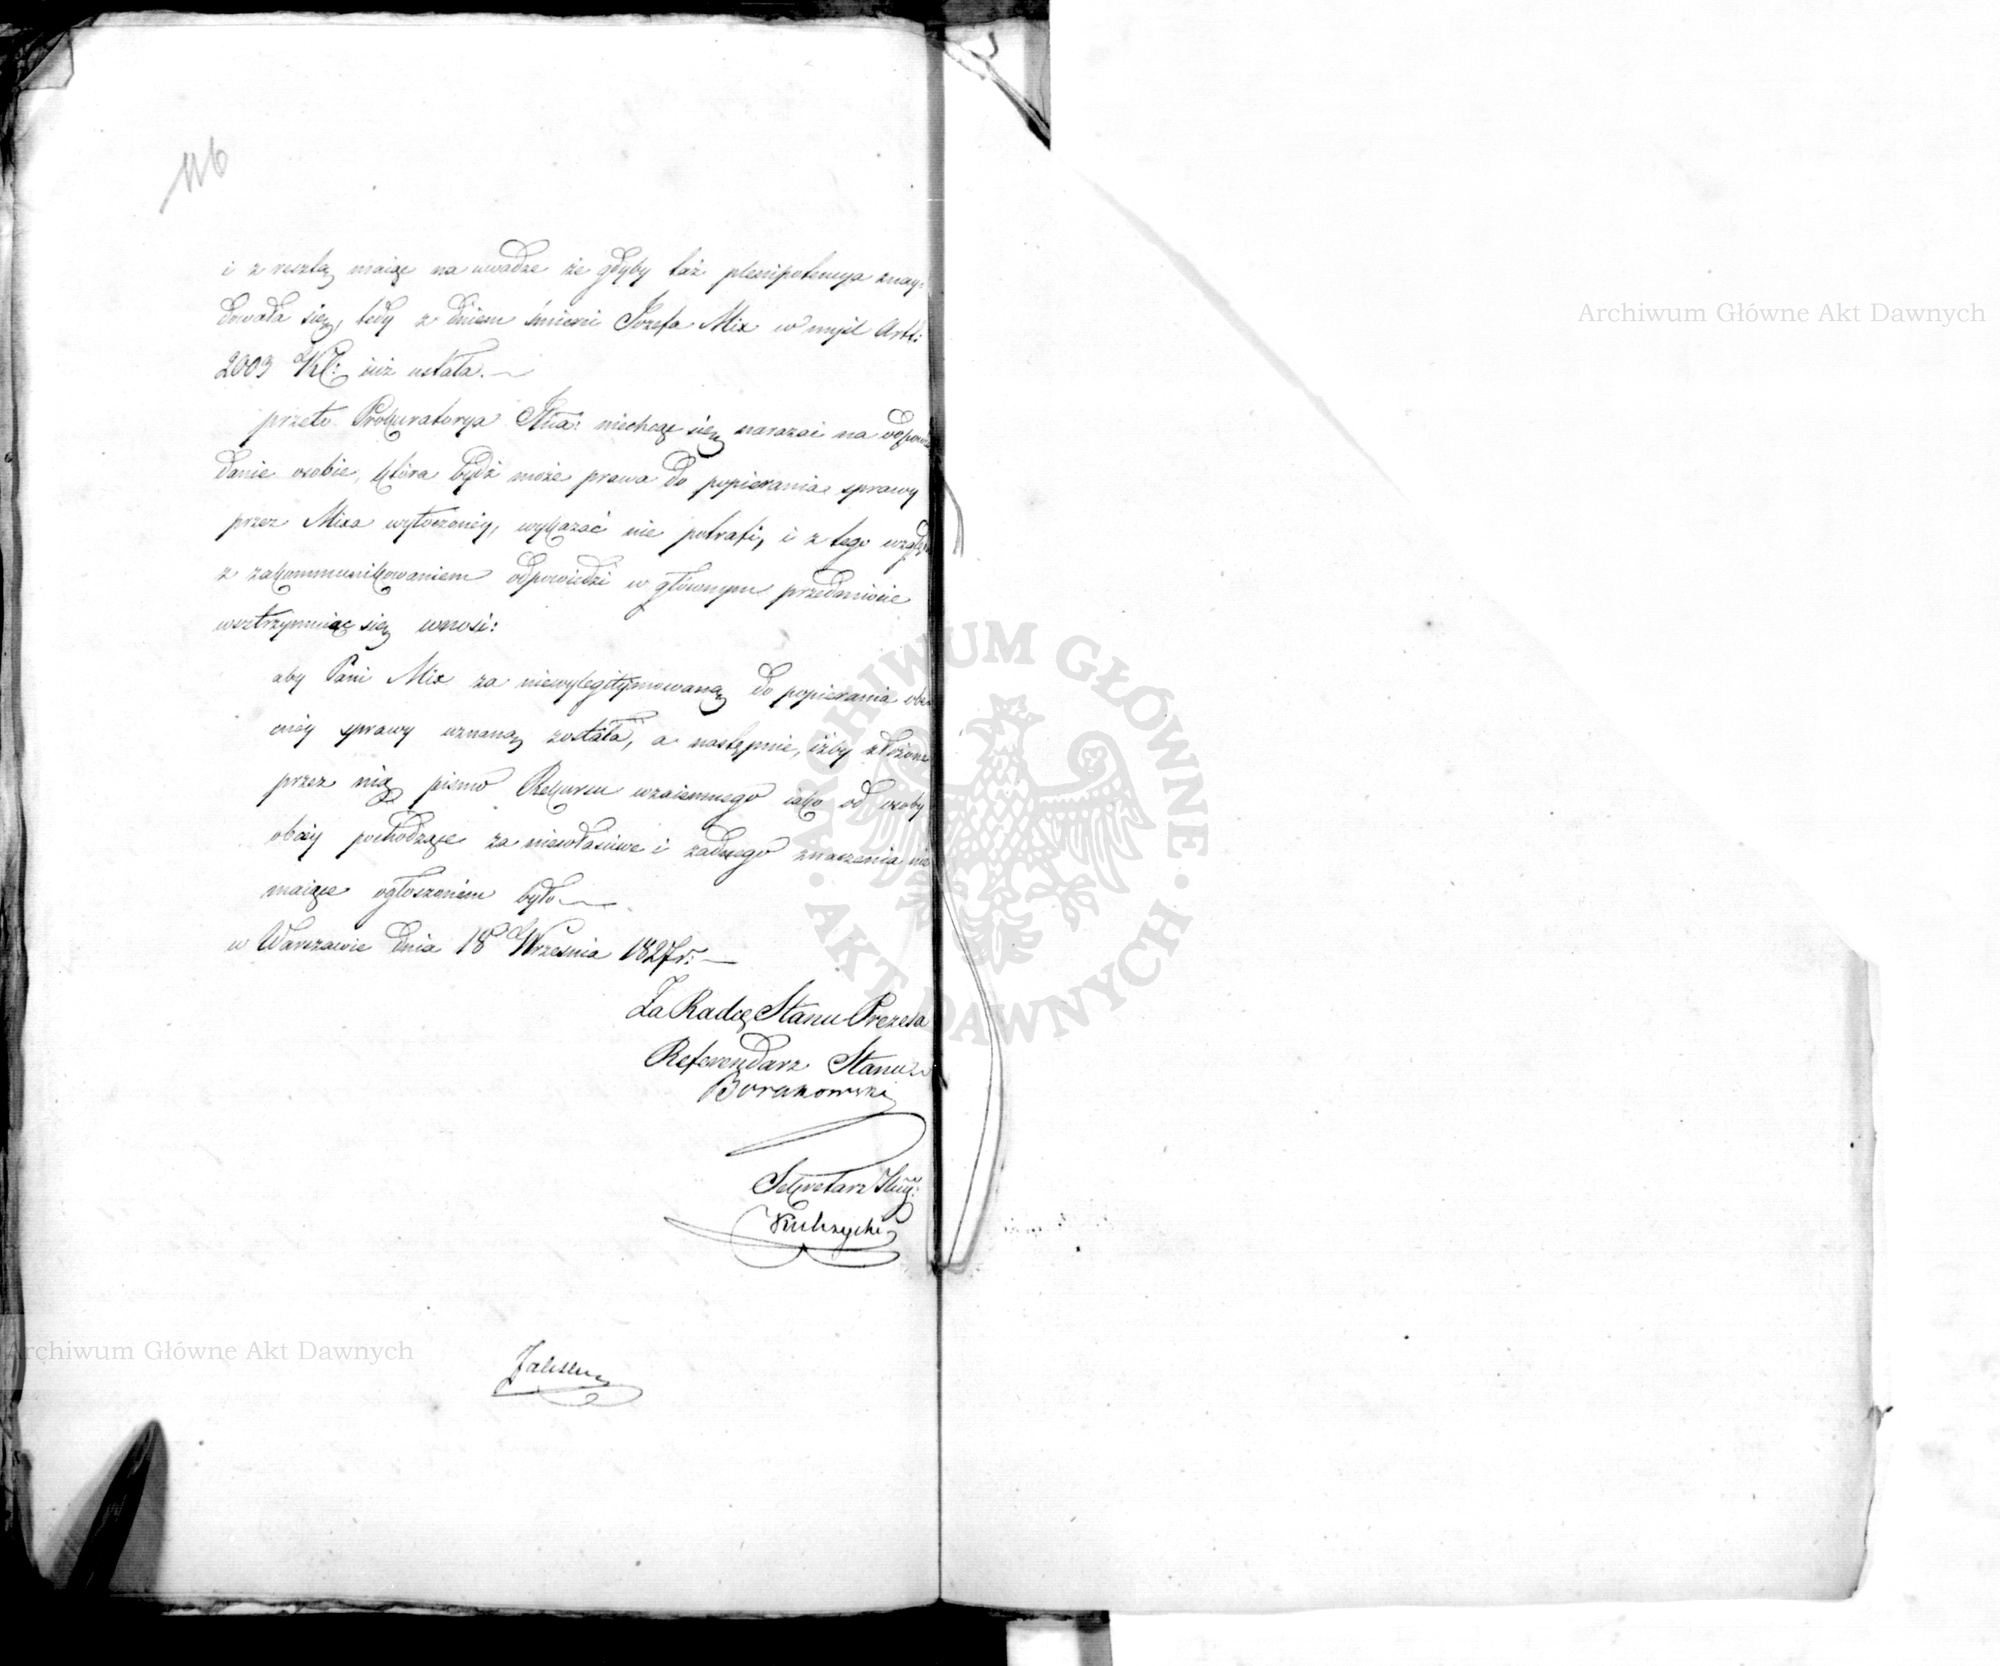 116
i z resztą maiąc na uwadze że gdyby taż plenipotencya znay=
dowała się, tedy z dniem śmierci Jozefa Mix w myśl Art:
2003 KC: iuż ustała.—
przeto Procuratorya niechcąc się narazać na odpowia
danie osobie, która bydź może prawa do popierania sprawy
przez Mixa wytoczoney, wykazać nie potrafi, i z tego względu
z zakommunikowaniem odpowiedzi w głównym przedmiocie
wsztrzymuiąc się wnosi:
aby Pani Mix za niewylegitymowaną do popierania obe
cney sprawy uznaną została, a następnie, iżby złożone
przez nią pismo Rekursu wzaiemnego iako od osoby
obcéy pochodzące za niewłaściwe i żadnego znaczenia nie
maiące ogłoszonem było.—
w Warszawie dnia 18 Września 1827 r:—
Za Radcę Stanu Prezesa
Referendarz Stanu
Borakowski
Sekretarz
Kulszycki
Archiwum Główne Akt Dawnych
Archiwum Główne Akt Dawnych
ARCHIWUM GŁÓWNE · AKT DAWNYCH ·